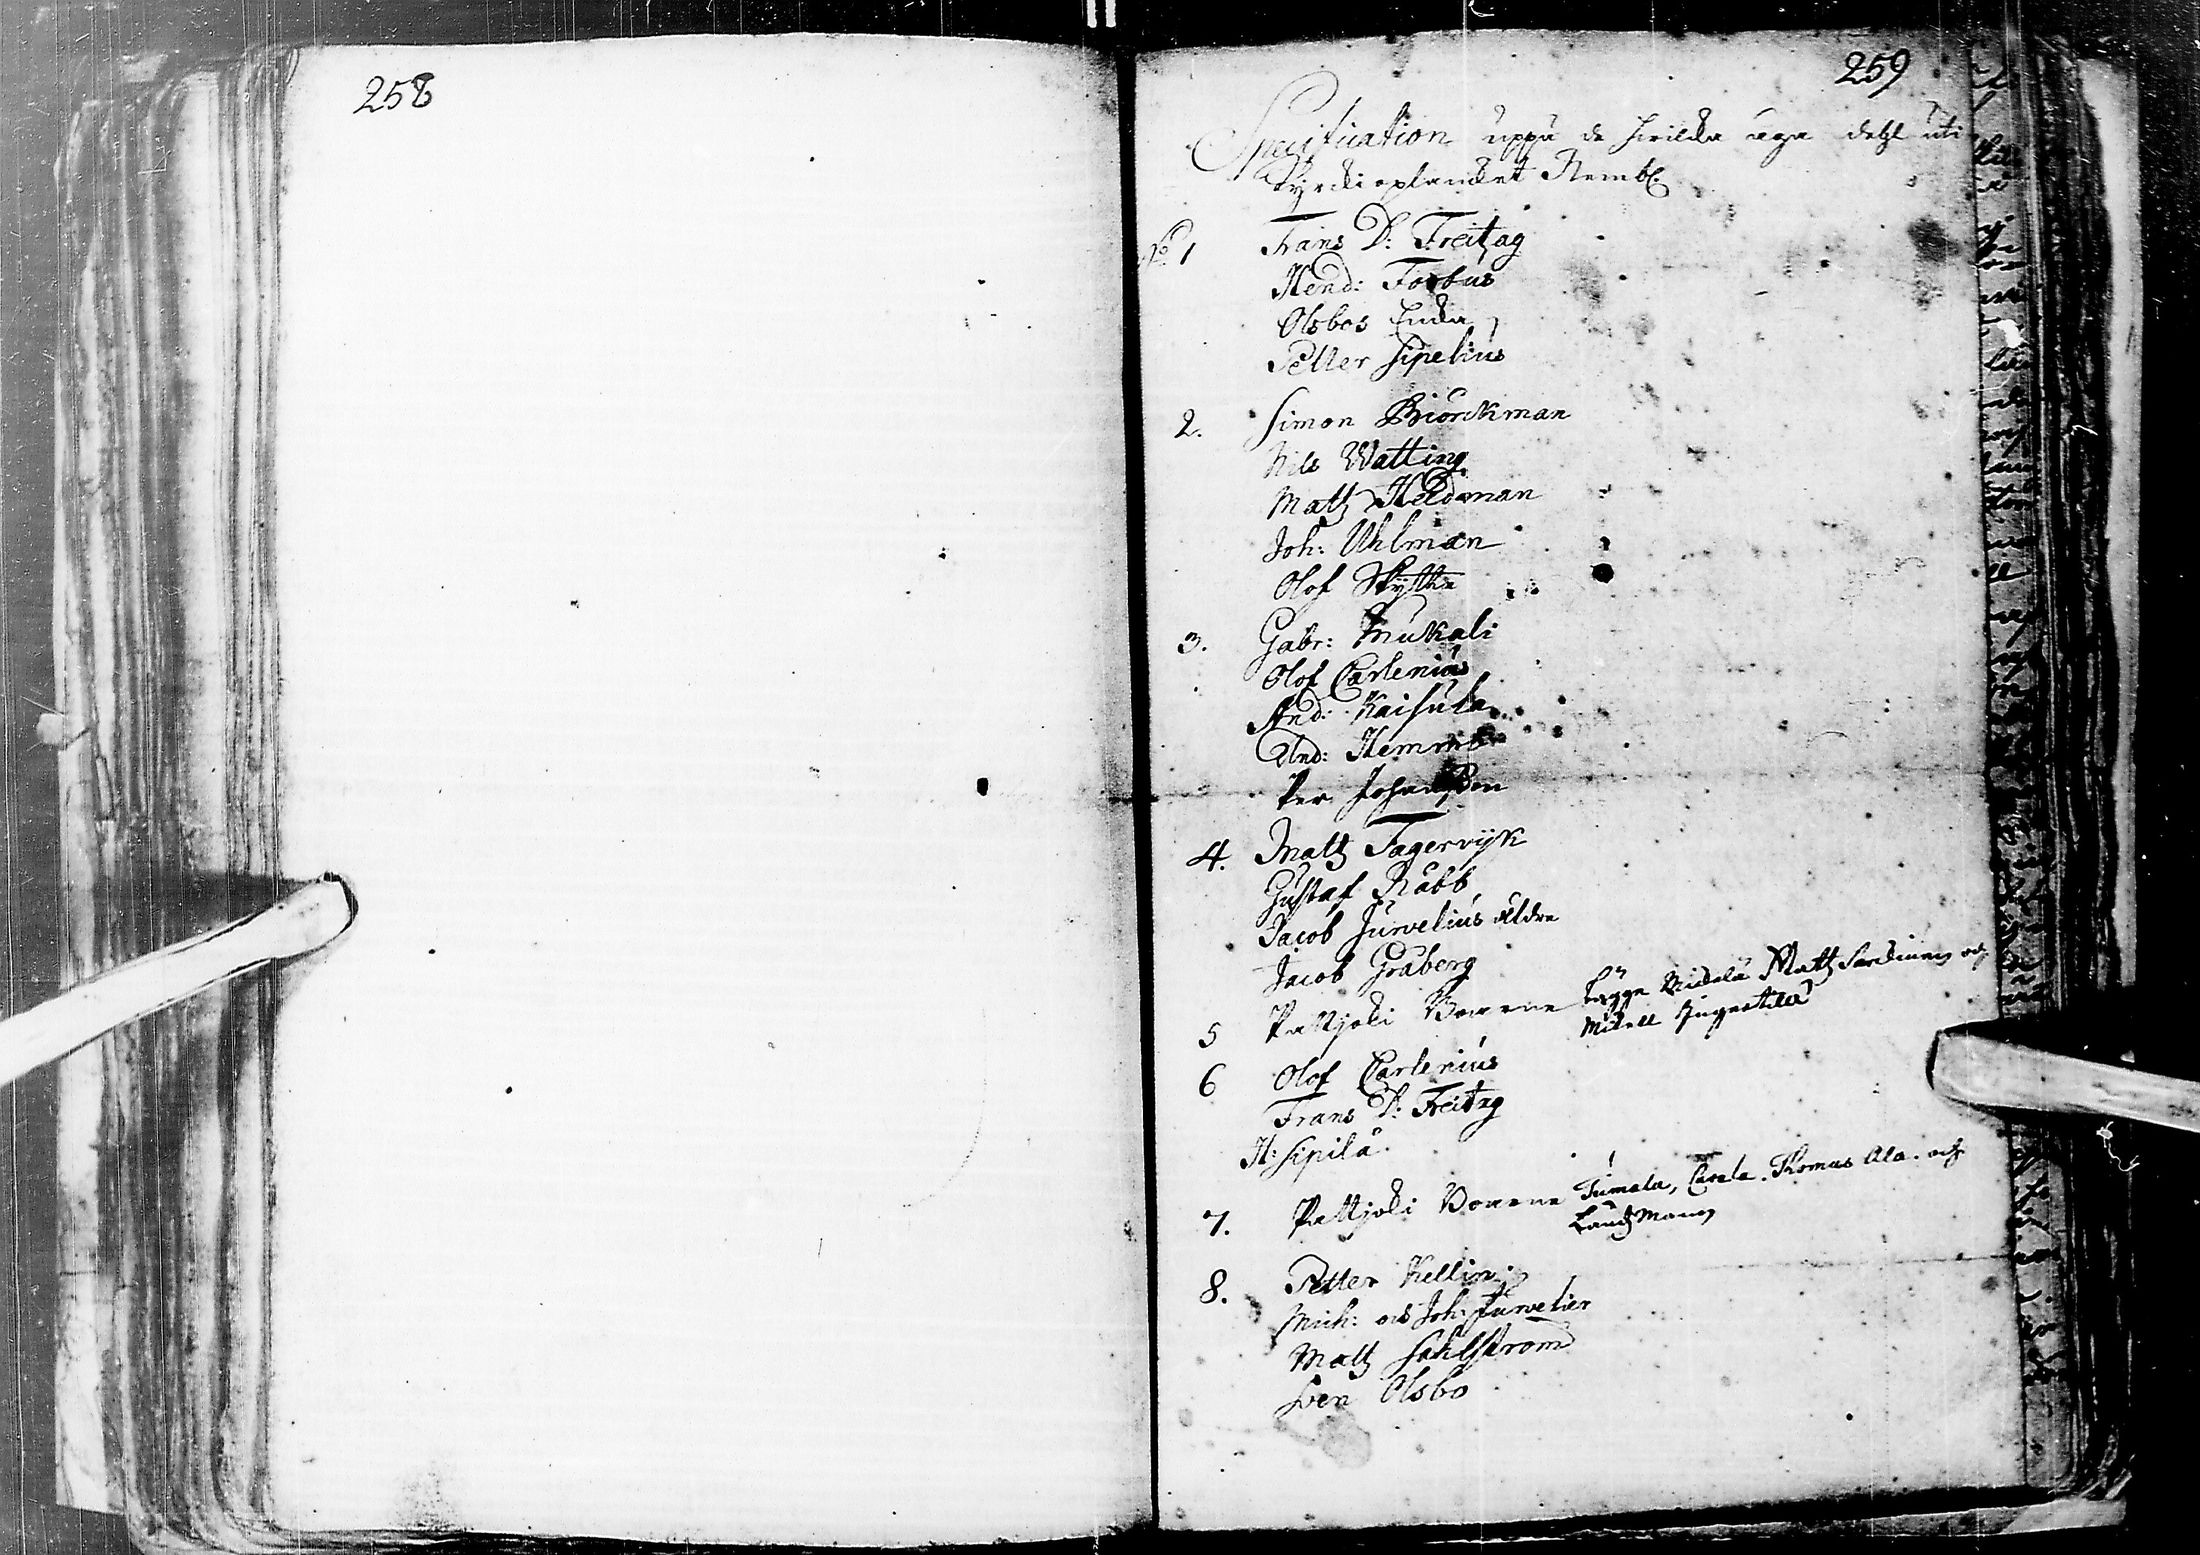 258
259
Specification uppå de hvilka äga dehl uti
Kyrckioplancket Nembl:
No 1 Frans D: Freitag
Hend: Forbus
Olsbos Enka
Petter Sipelius
2. Simon Biörckman
Nils Watting
Matz Heidman
Joh: Uhlman
Olof Skytte
3. Gabr: Mukali
Olof Carlenius
And: Kaisula
And: Hemming
Per Johansson
4. Matz Fagervijk
Gustaf Rabb
Jacob Jurvelius äldre
Jacob Gråberg
5 Pattjoki Boarne Lagge Mickelä Matz och
Mikell
6 Olof Carlenius
Frans D: Freitag
H: Sipilä
7. Pattjoki Boarne Tumala, Carela. Thomas Ala. och
Landzman
8. Petter Kellin
Mich: och Joh: Jurvelier
Matz Sahlström
Sven Olsbo